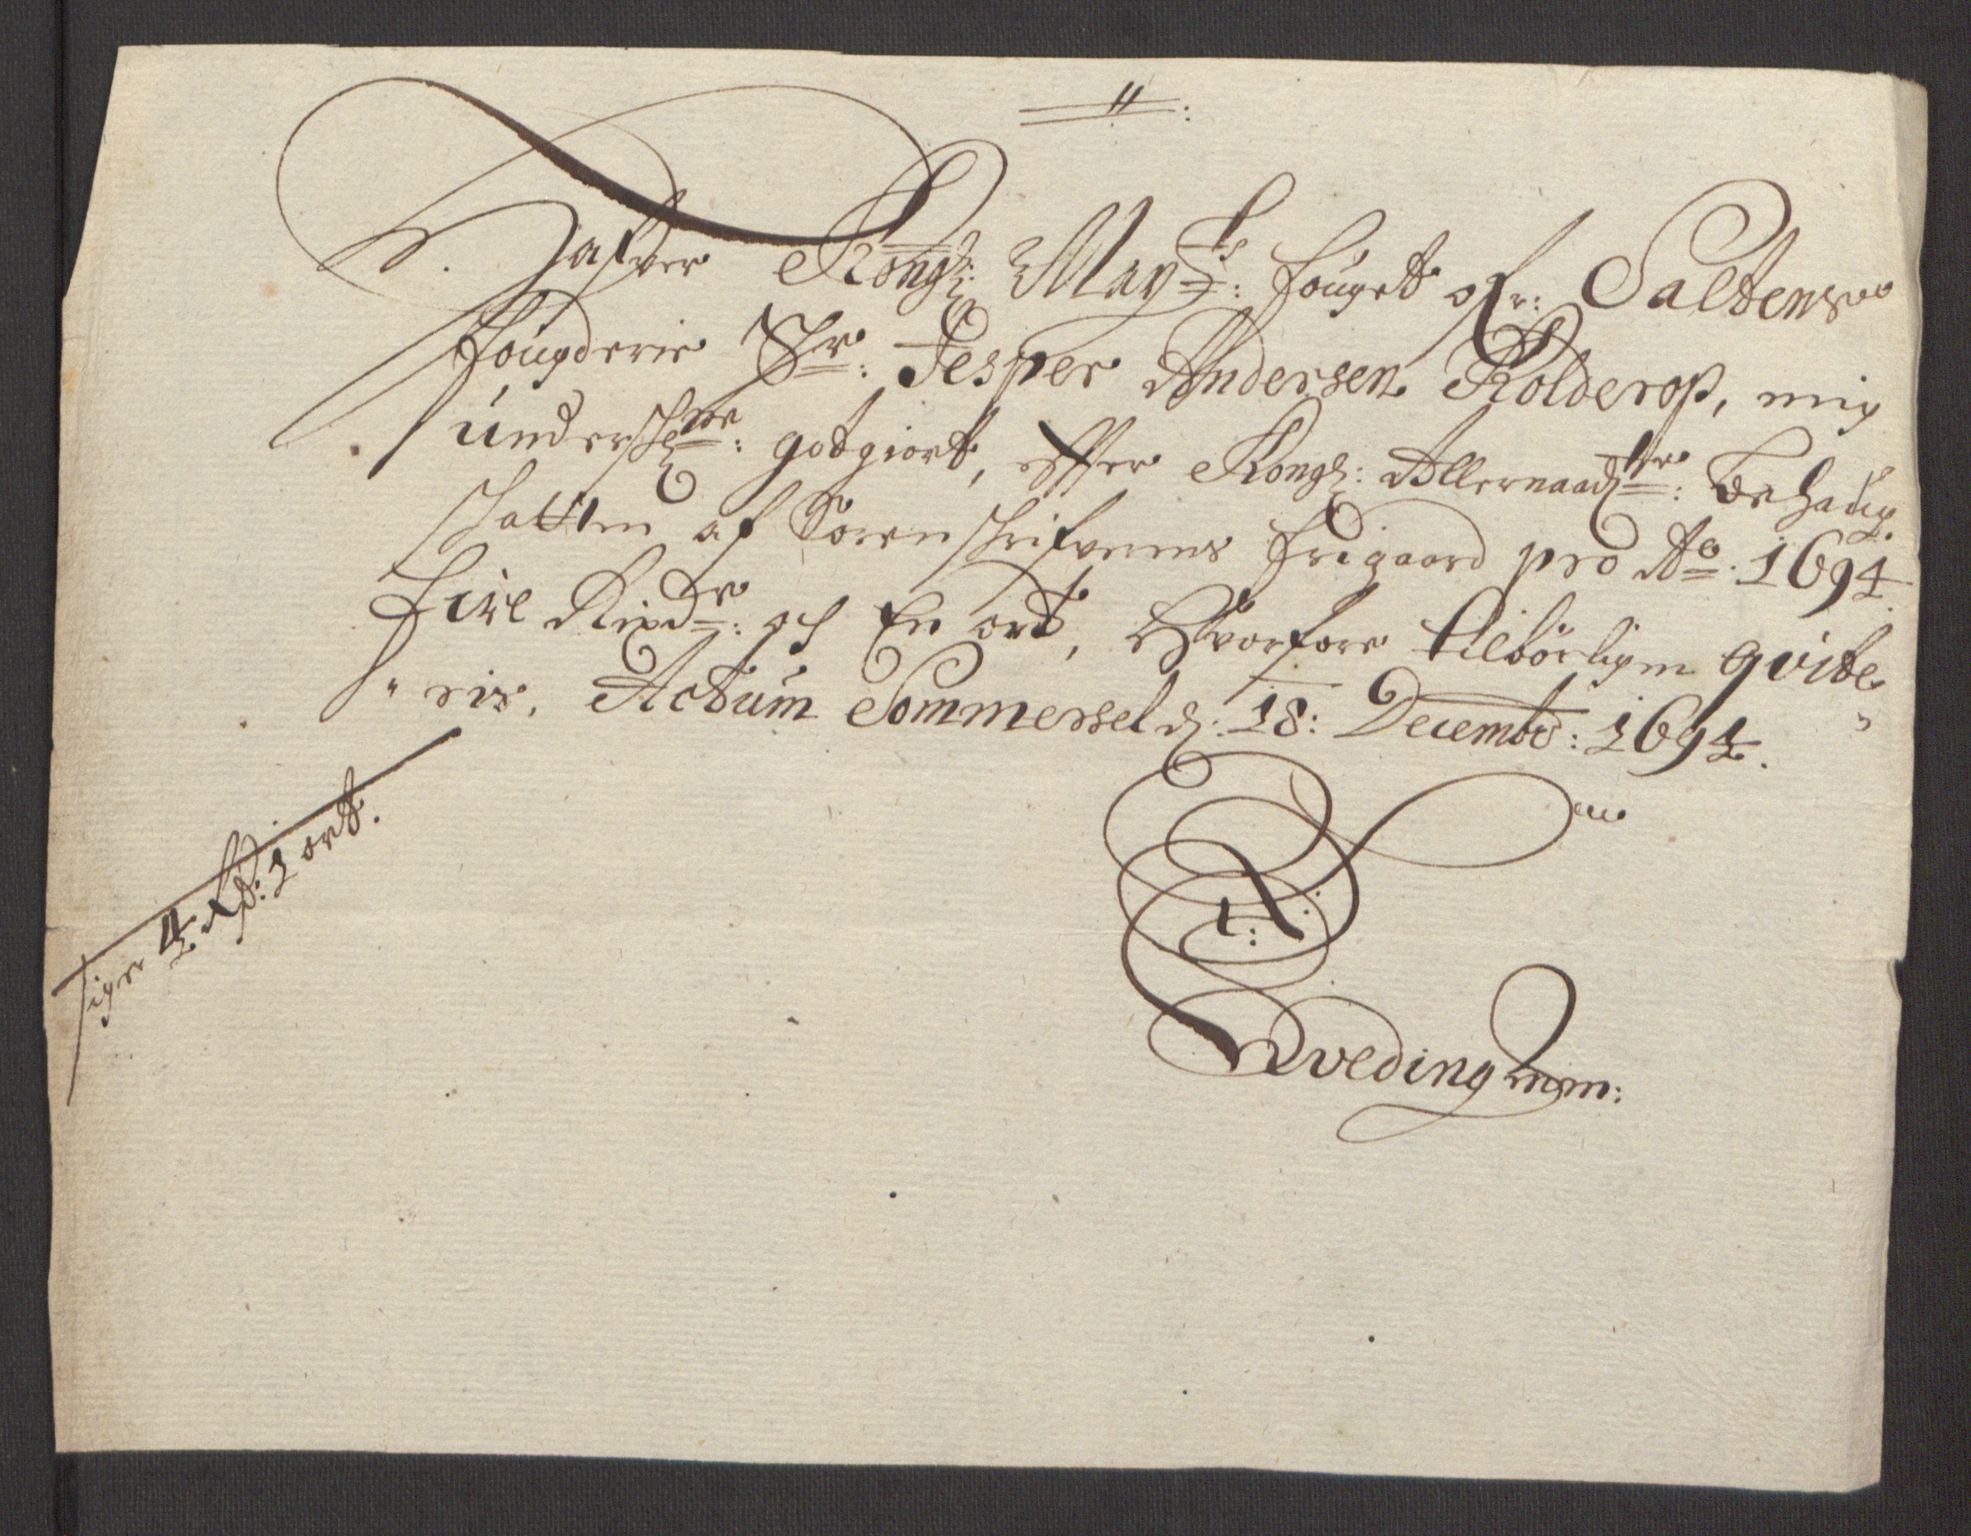 Hafver Kongl: May:ts fougett ofr: Saltens
fougderie Sr: Jesper Andersen Kolderop, mig
underschr: godtgiort, effter Kongl: Allernaadr: behag
schatten af Sorenschrifverens frigaard pro Ao. 1694
Fire Rixdr: och En ort, Hvorfore tilbörligen qvite-
ris. Actum Sommersel d. 18: Decembr: 1694.
siger 4 Rd: 1 ort.
Hveding mm: